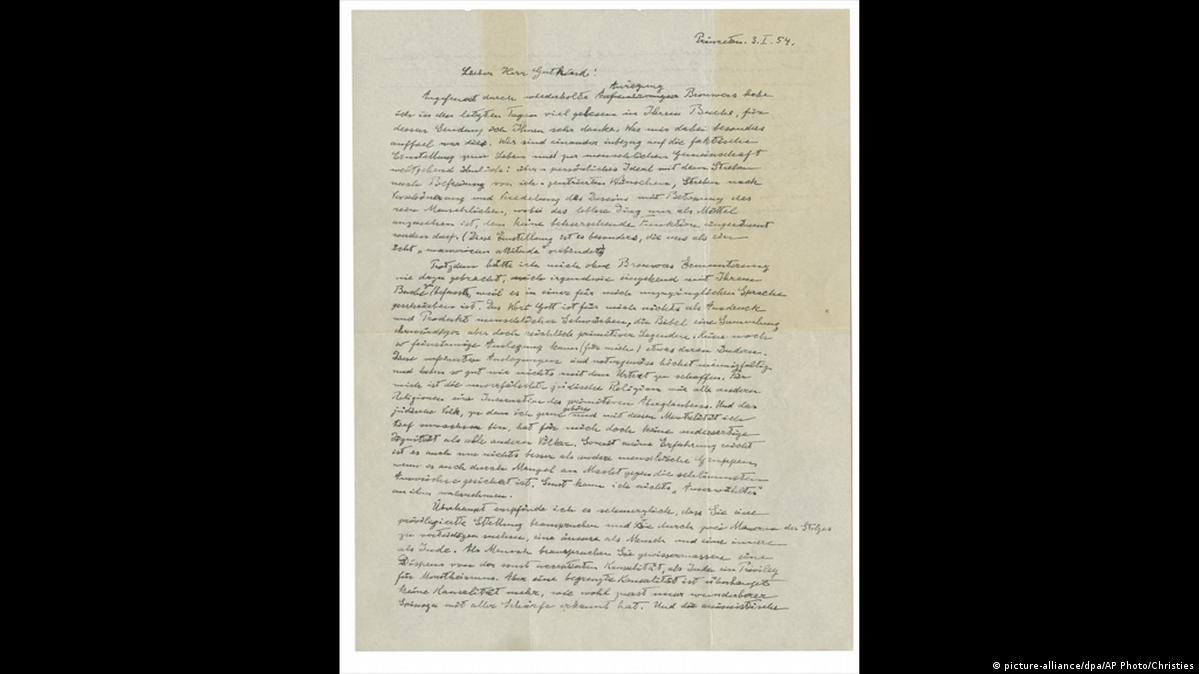 Princeton. 3. I. 54.
Lieber Herr Gutkind!
Anregung
Angefeuert durch wiederholte Brouwers habe
ich in den letzten Tagen viel gelesen in Ihrem Buche, für
dessen Sendung ich Ihnen sehr danke. Was mir dabei besonders
auffiel war dies. Wir sind einander inbezug auf die faktische
Einstellung zum Leben und zur menschlichen Gemeinschaft
weitgehend ähnlich: über-persönliches Ideal mit dem Streben
nach Befreiung von ich-zentrierten Wünschen, Streben nach
Verschönerung und Veredelung des Daseins mit Betonung des
rein Menschlichen, wobei das leblose Ding nur als Mittel
anzusehen ist, dem keine beherrschende Funktion eingeräumt
werden darf. (Diese Einstellung ist es besonders, die uns als ein
echt „unamerican attitude" verbindet)
Trotzdem hätte ich mich ohne Brouwers Ermunterung
nie dazu gebracht, mich irgendwie eingehend mit Ihrem
Buche zu befassen, weil es in einer für mich unzugänglichen Sprache
geschrieben ist. Das Wort Gott ist für mich nichts als Ausdruck
und Produkt menschlicher Schwächen, die Bibel eine Sammlung
ehrwürdiger aber doch reichlich primitiver Legenden. Keine noch
so feinsinnige Auslegung kann (für mich) etwas daran ändern.
Diese verfeinerten Auslegungen sind naturgemäss höchst mannigfaltig
und haben so gut wie nichts mit dem Urtext zu schaffen. Für
mich ist die unverfälschte jüdische Religion wie alle anderen
Religionen eine Incarnation des primitiven Aberglaubens. Und das
jüdische Volk, zu dem ich gerne gehöre und mit dessen Mentalität ich
tief verwachsen bin, hat für mich doch keine andersartige
Dignität als alle anderen Völker. Soweit meine Erfahrung reicht
ist es auch um nichts besser als andere menschliche Gruppen,
wenn es auch durch Mangel an Macht gegen die schlimmsten
Auswüchse gesichert ist. Sonst kann ich nichts „Auserwähltes"
an ihm wahrnehmen.
Überhaupt empfinde ich es schmerzlich, dass Sie eine
privilegierte Stellung beanspruchen und sie durch zwei Mauern des Stolzes
zu verteidigen suchen, eine äussere als Mensch und eine innere
als Jude. Als Mensch beanspruchen Sie gewissermassen einen
Dispens von der sonst acceptierten Kausalität, als Jude ein Privileg
für Monotheismus. Aber eine begrenzte Kausalität ist überhaupt
keine Kausalität mehr, wie wohl zuerst unser wunderbarer
Spinoza mit aller Schärfe erkannt hat. Und die animistische
picture-alliance/dpa/AP Photo/Christies